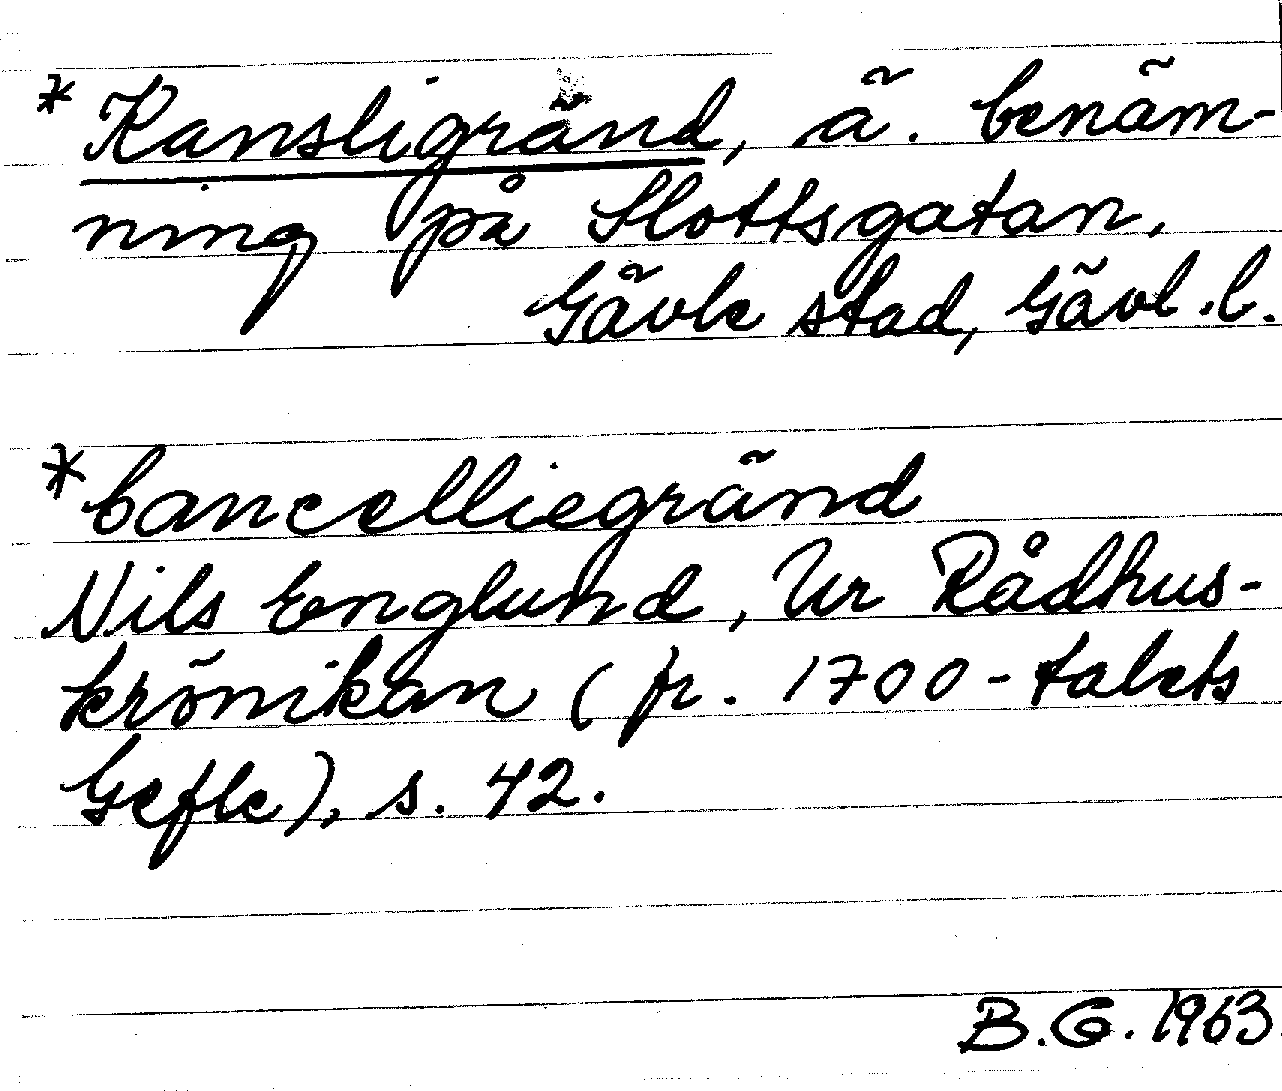 * Kansligränd, ä. benäm-
ning på Slottsgatan,
Gävle stad, Gävl. l.
* Cancelliegränd
Nils Englund, Ur Rådhus-
krönikan (fr. 1700-talets
Gefle), s. 42.
B.G. 1963.